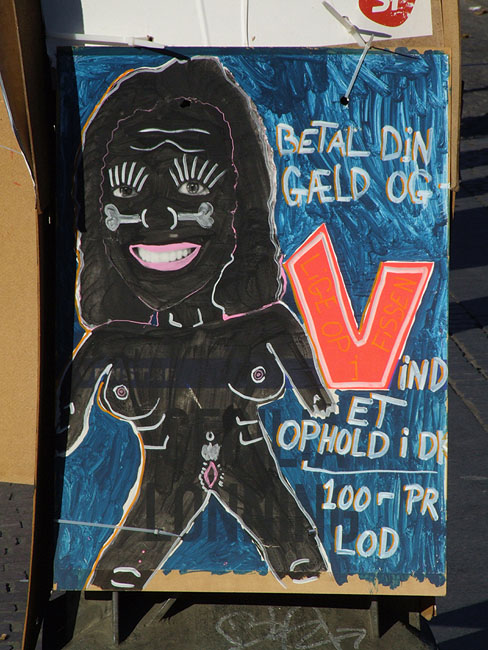 BETAL DIN
GÆLD OG
LIGE OP
I
FISSEN
VIND
ET
OPHOLD i DK
100- PR
LOD